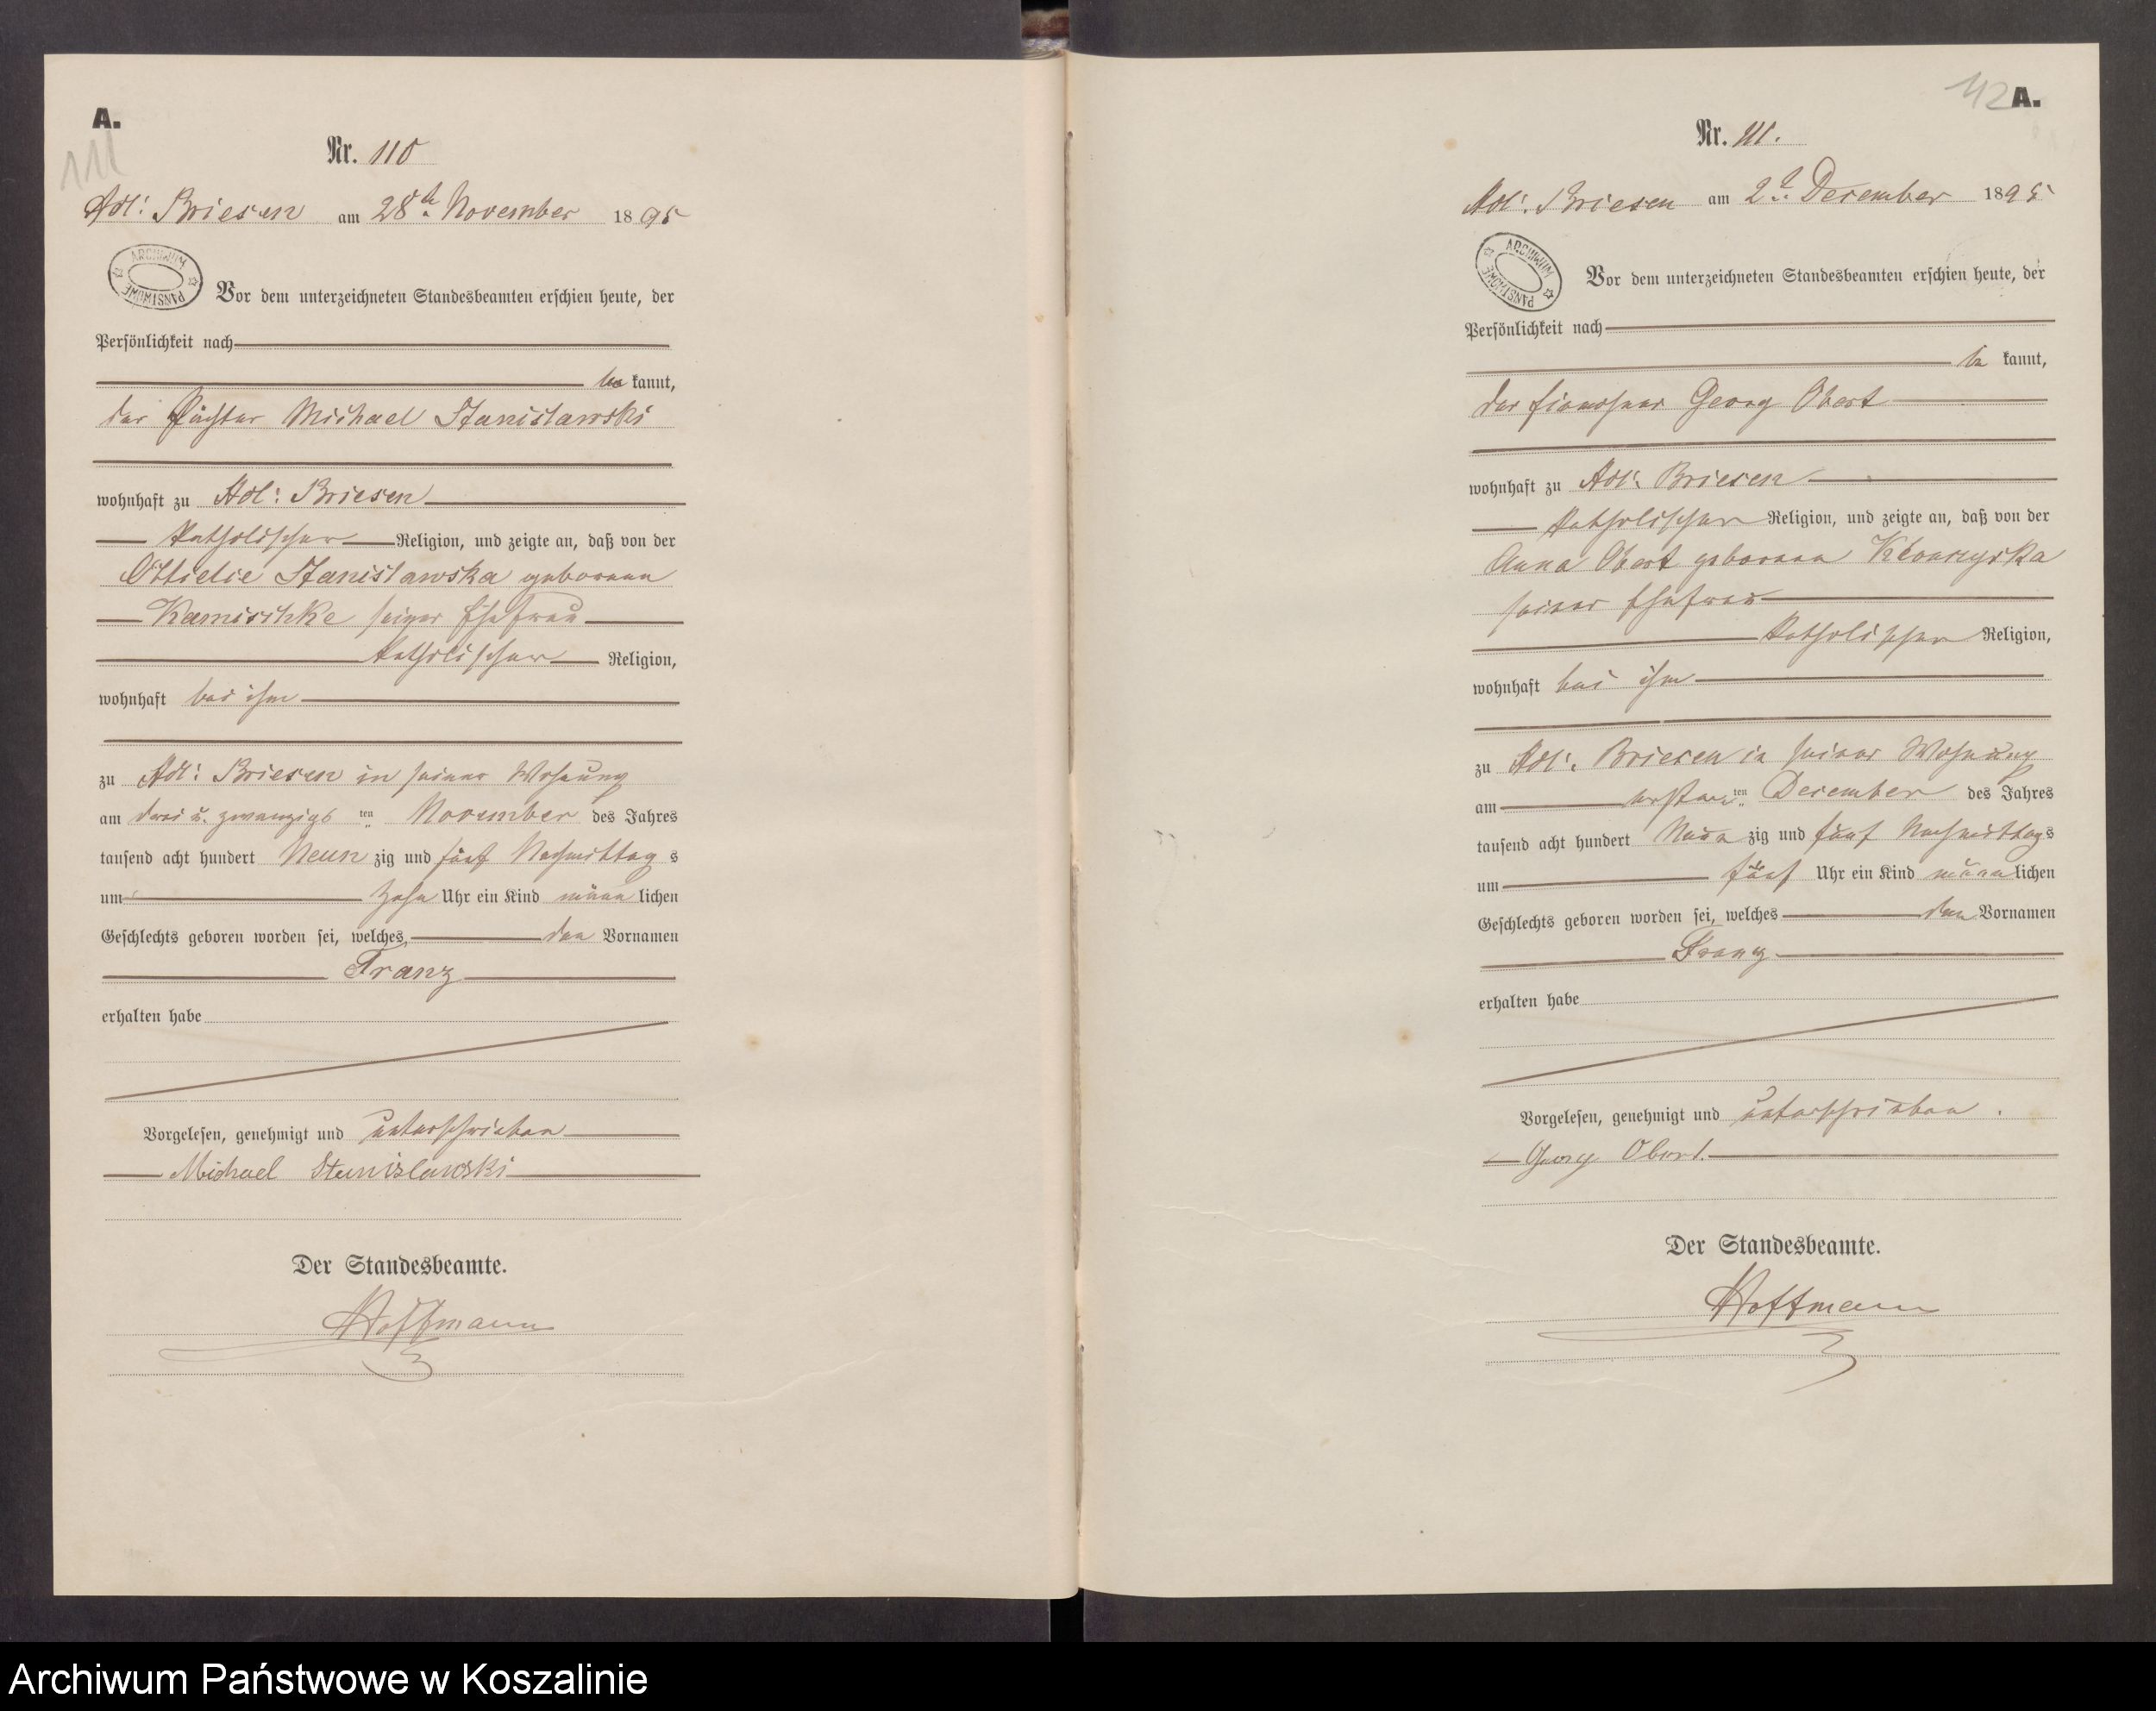 A.
111
Nr. 110
Adl: Briesen am 28ten November 1895
ARCHIWUM PAŃSTWOWE
Vor dem unterzeichneten Standesbeamten erschien heute, der
Persönlichkeit nach
be kannt,
der Pächter Michael Stanislawski
wohnhaft zu Adl: Briesen
katholischer Religion, und zeigte an, daß von der
Ottielie Stanislawska geborenen
Kamischke seiner Ehefrau
katholischer Religion,
wohnhaft bei ihm
zu Adl: Briesen in seiner Wohnung
am drei u. zwanzigs ten November des Jahres
tausend acht hundert Neun zig und fünf Nachmittag s
um zehn Uhr ein Kind männ lichen
Geschlechts geboren worden sei, welches den Vornamen
Franz
erhalten habe
Vorgelesen, genehmigt und unterschrieben
Michael Stanislawski
Der Standesbeamte.
Hoffmann
112 A.
Nr. 111.
Adl: Briesen am 2t. December 1895
ARCHIWUM PAŃSTWOWE
Vor dem unterzeichneten Standesbeamten erschien heute, der
Persönlichkeit nach
be kannt,
der Georg Obert
wohnhaft zu Adl: Briesen
katholischer Religion, und zeigte an, daß von der
Anna Obert geborenen
seiner Ehefrau
katholischer Religion,
wohnhaft bei ihm
zu Adl: Briesen in seiner Wohnung
am ersten ten December des Jahres
tausend acht hundert Neun zig und fünf Nachmittags
um fünf Uhr ein Kind männlichen
Geschlechts geboren worden sei, welches den Vornamen
Franz
erhalten habe
Vorgelesen, genehmigt und unterschrieben.
Georg Obert.
Der Standesbeamte.
Hoffmann
Archiwum Państwowe w Koszalinie